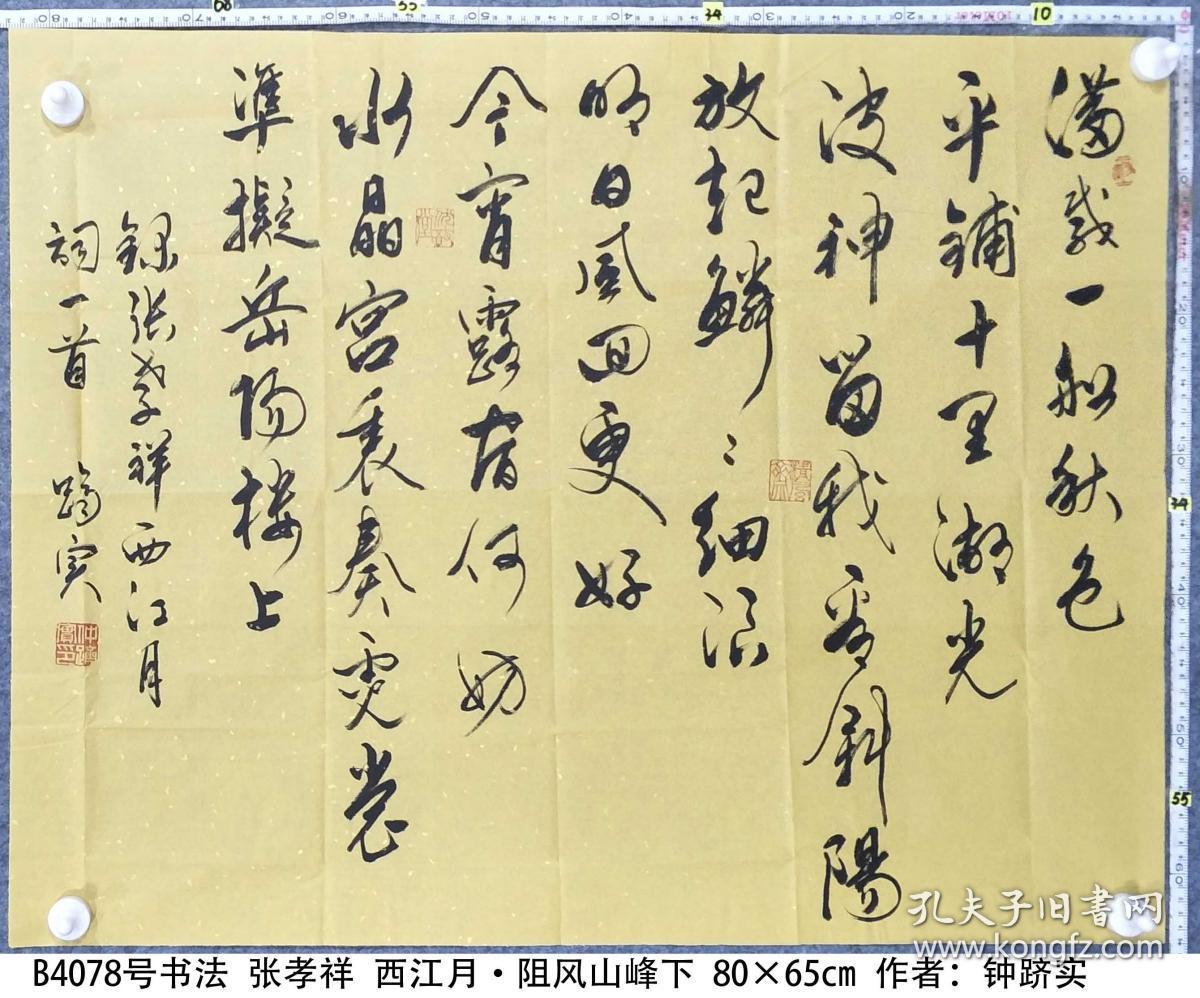 滿載一船秋色
平鋪十里湖光
波神留我看斜陽
放起鱗々細浪
明日風回更好
今宵露宿何妨
水晶宮裏奏霓裳
準擬岳陽樓上
錄張孝祥西江月
詞一首 躋实
孔夫子旧书网
www.kongfz.com
B4078号书法 张孝祥 西江月·阻风山峰下 80×65cm 作者：钟跻实